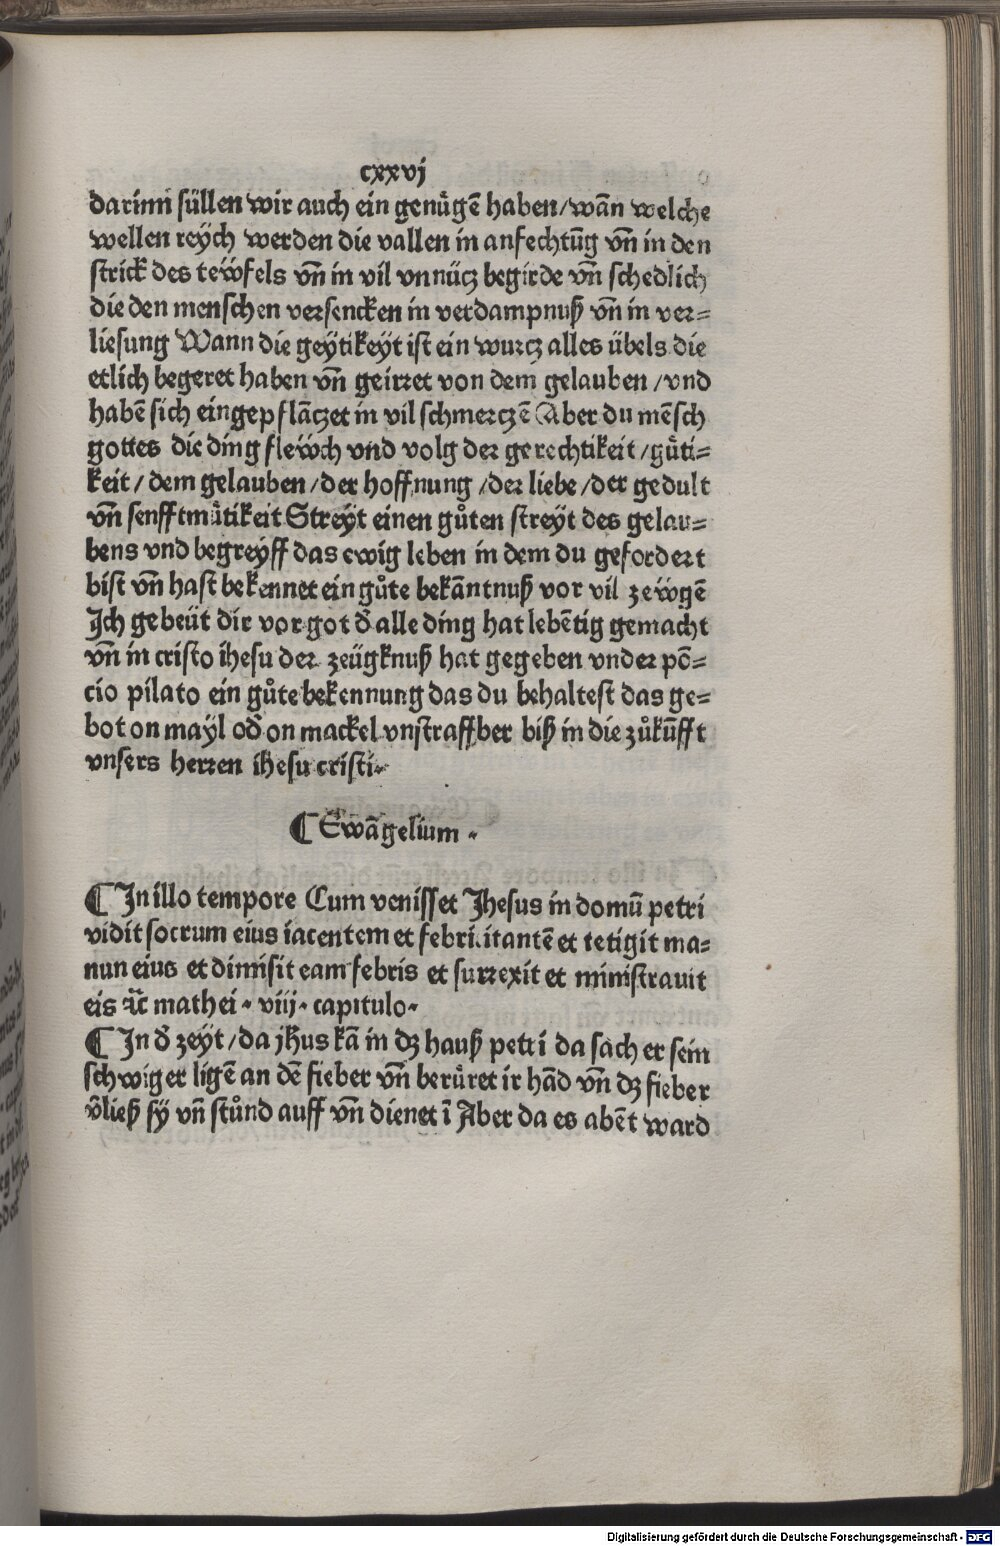 cxxvj
darinn süllen wir auch ein genůgē haben/wān welche
wellen reych werden die vallen in anfechtūg vn̄ in den
strick des tewfels vn̄ in vil vnnücz begirde vn̄ schedlich
die den menschen versencken in verdampnuß vn̄ in ver=
liesung Wann die geytikeyt ist ein wurcz alles übels die
etlich begeret haben vn̄ geirret von dem gelauben/vnd
habē sich eingepflāczet in vil schmerczē Aber du mēsch
gottes die ding flewch vnd volg der gerechtikeit/gůti=
keit/dem gelauben/der hoffnung/der liebe/der gedult
vn̄ senfftmůtikeit Streyt einen gůten streyt des gelau=
bens vnd begreyff das ewig leben in dem du gefordert
bist vn̄ hast bekennet ein gůte bekāntnuß vor vil zewgē
Ich gebeüt dir vor got d̄ alle ding hat lebētig gemacht
vn̄ in cristo ihesu der zeügknuß hat gegeben vnder pō=
cio pilato ein gůte bekennung das du behaltest das ge=
bot on mayl od̄ on mackel vnstraffber biß in die zůkūfft
vnsers herren ihesu cristi.
¶ Ewāgelium .
¶ In illo tempore Cum venisset Jhesus in domū petri
vidit socrum eius iacentem et febricitantē et tetigit ma=
nun eius et dimisit eam febris et surrexit et ministrauit
eis ꝛc̄ mathei . viij . capitulo .
¶ In d̄ zeyt/da jhus kā in dz hauß petri da sach er sein
schwiger ligē an dē fieber vn̄ berůret ir hād vn̄ dz fieber
v̄ließ sy vn̄ stůnd auff vn̄ dienet ī Aber da es abēt ward
Digitalisierung gefördert durch die Deutsche Forschungsgemeinschaft - DFG